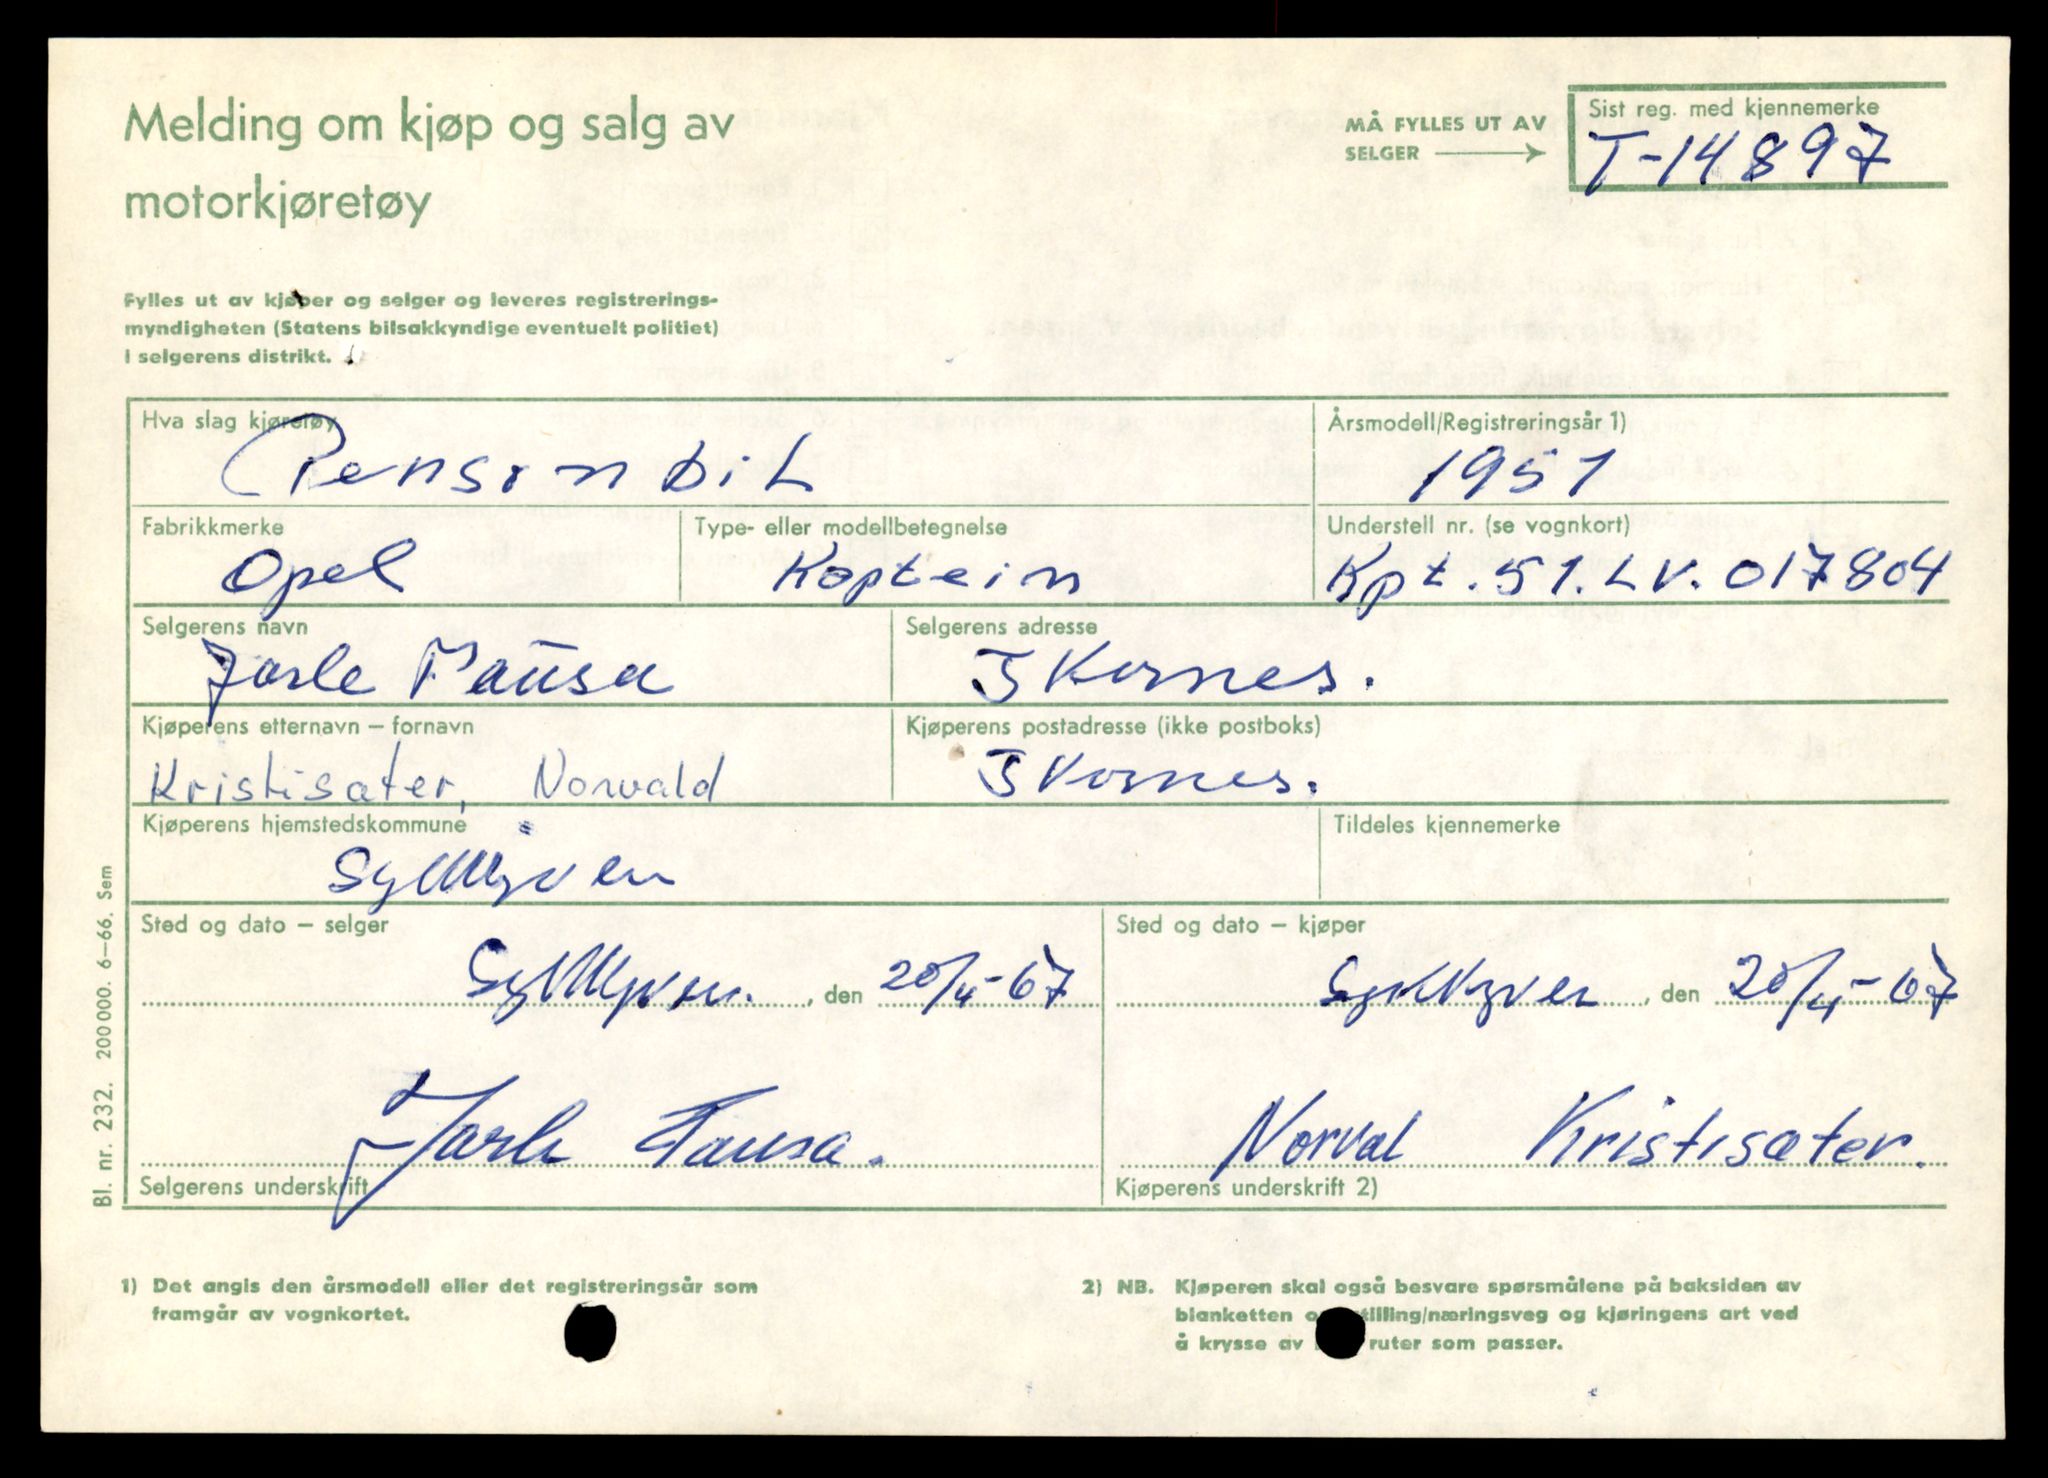 Melding om kjøp og salg av
motorkjøretøy
MÅ FYLLES UT AV
SELGER
Sist reg. med kjennemerke
T-14897
Fylles ut av kjøper og selger og leveres registrerings-
myndigheten (Statens bilsakkyndige eventuelt politiet)
i selgerens distrikt.
Hva slag kjøretøy
Personbil
Årsmodell/Registreringsår 1)
1951
Fabrikkmerke
Opel
Type- eller modellbetegnelse
Koptein
Understell nr. (se vognkort)
Kpt. 51. LV. 017804
Selgerens navn
Jarle
Selgerens adresse
Kjøperens etternavn – fornavn
Kristisæter, Norvald
Kjøperens postadresse (ikke postboks)
Kjøperens hjemstedskommune
Sykkylven
Tildeles kjennemerke
Sted og dato – selger
Sykkylven. , den 20/4-67
Sted og dato – kjøper
Sykkylven , den 20/4-67
Jarle
Selgerens underskrift
Norval Kristisæter.
Kjøperens underskrift 2)
1) Det angis den årsmodell eller det registreringsår som
framgår av vognkortet.
2) NB. Kjøperen skal også besvare spørsmålene på baksiden av
blanketten tilling/næringsveg og kjøringens art ved
å krysse av ruter som passer.
Bl. nr. 232. 200 000. 6–66. Sem